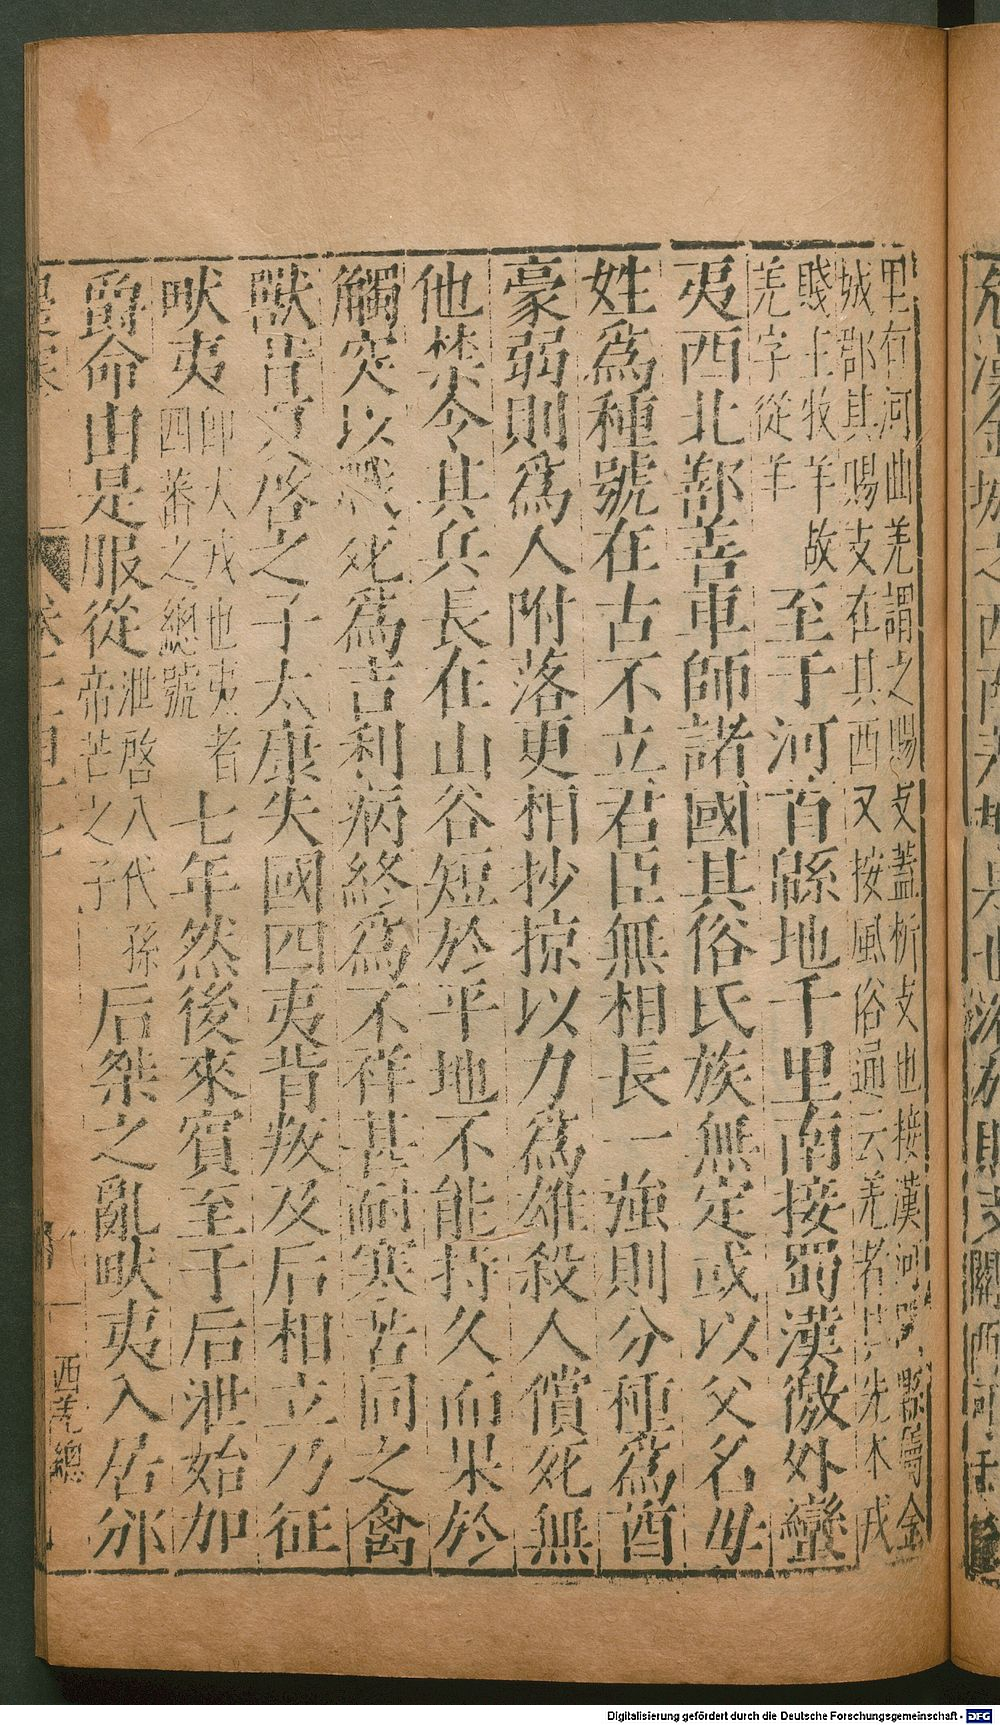 里有河曲羌謂之賜支蓋析支也接漢河關縣屬金
城郡其賜支在其西又按風俗通云羌者其先本戎
賤主牧羊故
羌字從羊
至于河首緜地千里南接蜀漢徼外蠻
夷西北鄯善車師諸國其俗氏族無定或以父名母
姓爲種號在古不立君臣無相長一強則分種爲酋
豪弱則爲人附落更相抄掠以力爲雄殺人償死無
他禁令其兵長在山谷短於平地不能持久而果於
觸突以戰死爲吉利病終爲不祥甚耐寒苦同之禽
獸昔夏啓之子太康失國四夷背叛及后相立乃征
畎夷
即犬戎也夷者
四蕃之總號
七年然後來賓至于后泄始加
爵命由是服從
泄啓八代孫
帝芒之子
后桀之亂畎夷入居邠
西羌總
Digitalisierung gefördert durch die Deutsche Forschungsgemeinschaft - DFG